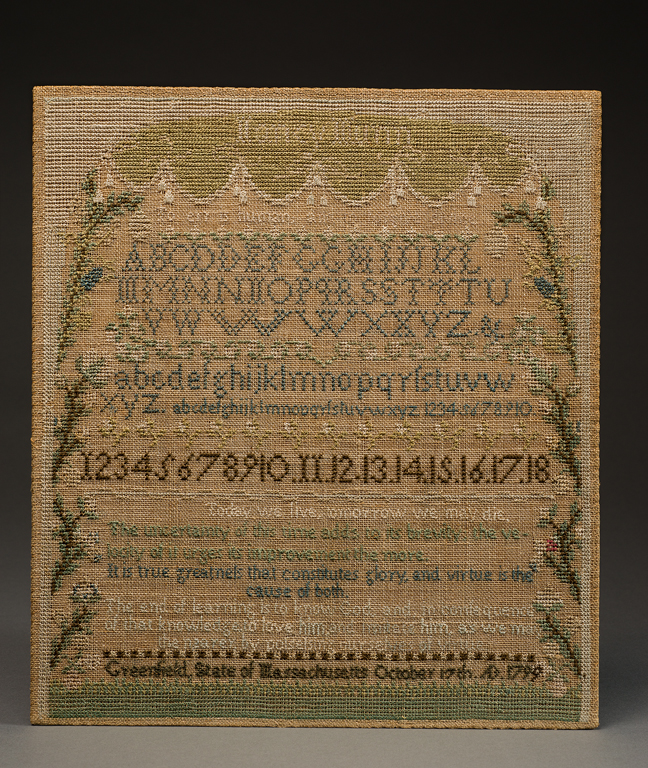 To err is human,
ABCDDEFGGHIJKL
MNNOPQRSSTTTU
VWWWXXYZ.&c.
abcdefghijklmnopqrſstuvw
xyz. abcdefghijklmnopqrſstuvwxyz. 12345678910.
12345678910.11.12.13.14.15.16.17.18.
Today we live, tomorrow we may die
The uncertainty of this time adds to its brevity, the ve-
locity of it urges its improvement the more.
It is true greatneſs that constitutes glory, and virtue is the
cause of both.
The end of learning is to know God, and in consequence
of that knowledge to love him, and imitate him, as we may
the nearer by
Greenfield, State of Massachusetts October 17th AD. 1799